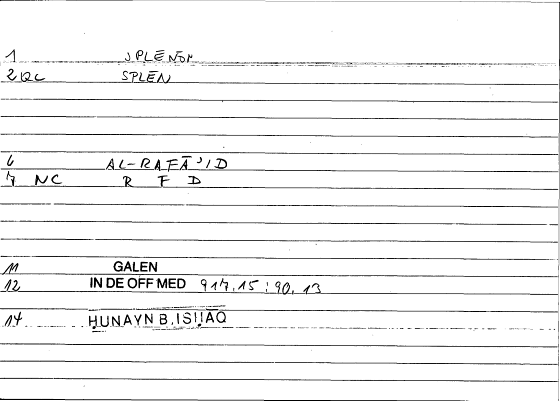 1 SPLĒNOM
2 QC SPLĒN
6 AL-RAFĀʾID
7 NC R F D
11 GALEN
12 IN DE OFF MED 917,15 : 90,13
14 ḤUNAYN B. ISḤĀQ